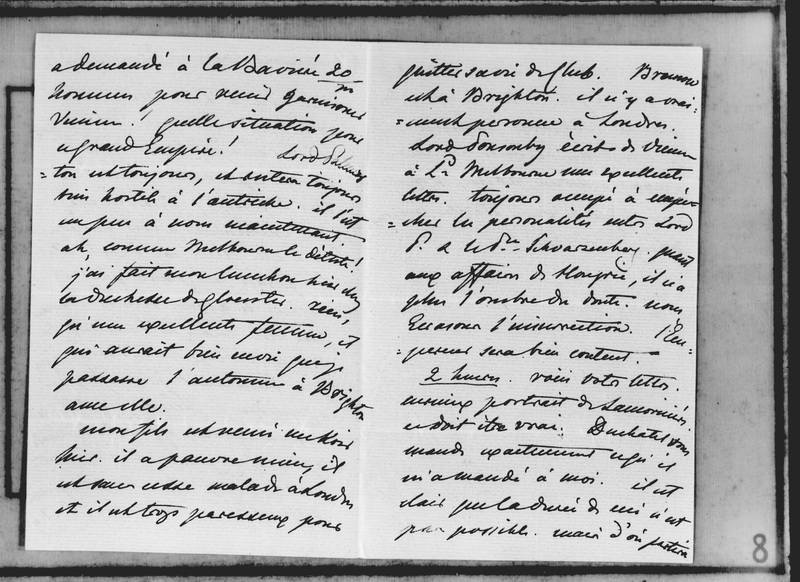 a demandé à la Bavière 20 m
hommes pour venir garnisonner
Vienne ! quelle situation pour
ce grand Empire ! Lord Palmers
= ton est toujours, et sera toujours
très hostile à l'autriche. il l'est
un peu à nous maintenant.
ah, comme Melbourne le déteste !
j'ai fait mon luncheon hier chez
la duchesse de Glocester. rien,
qu'une excellente femme, et
qui aurait bien envie que je
passasse l'automne à Brighton
avec elle.
mon fils est venu me voir
hier. il a pauvre mine, il
est sans cesse malade à Londres
et il est trop paresseux pour
quitter sa vie de Club. Brunnow
est à Brighton. il n'y a vrai-
= ment personne à Londres.
Lord Ponsonby écrit de Vienne
à Ld Melbourne une excellente
lettre. toujours occupé à empê-
= cher les personalités entre Lord
P. et le Pce Schwarzenberg. quant
aux affaires de Hongrie, il n'a
plus l'ombre du doute. nous
écrasons l'insurrection. l'Em-
= pereur sera bien content.
2 heures. voici votre lettre.
curieux portrait de Lamoricière.
ce doit être vrai. Duchatel vous
mande exactement ce qu'il
m'a mandé à moi. il est
clair que la durée de ceci n'est
pas possible. mais d'où partira
8